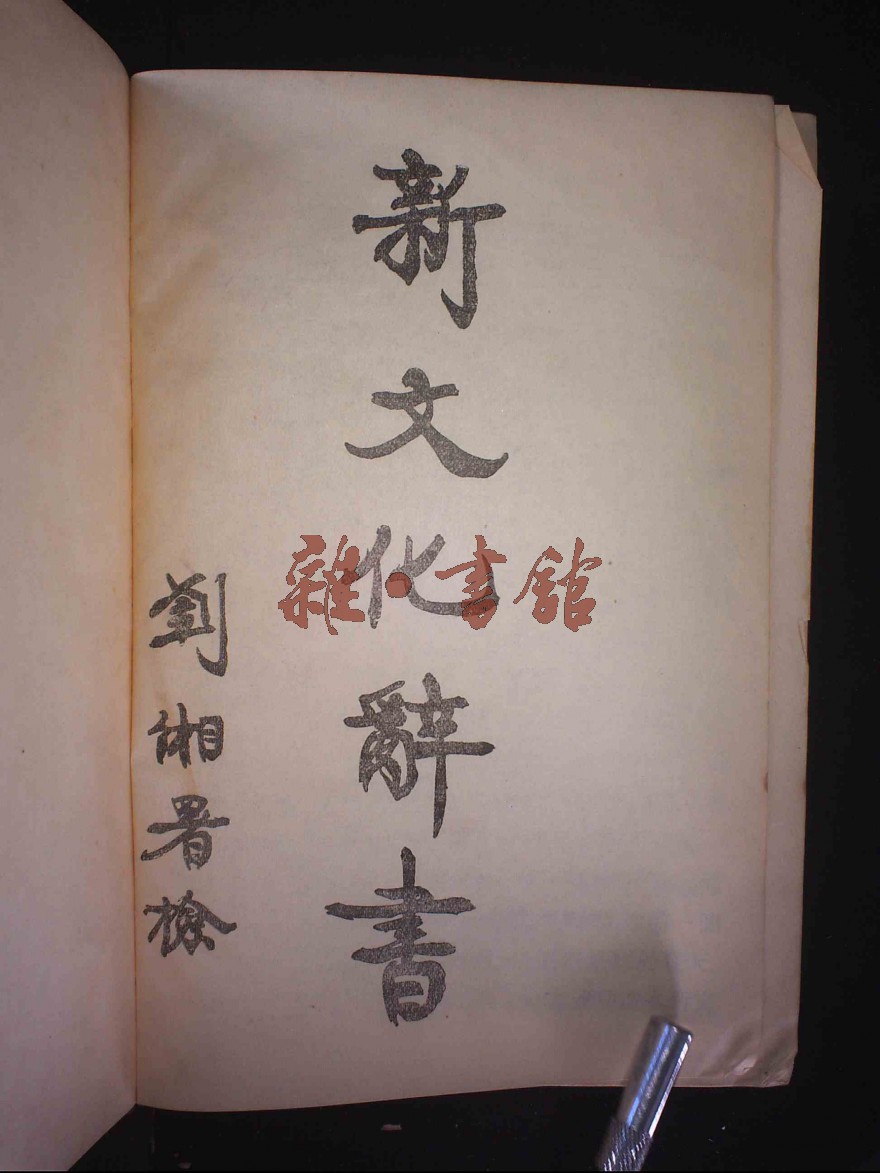 新文化辭書
劉湘署檢
雜·書館